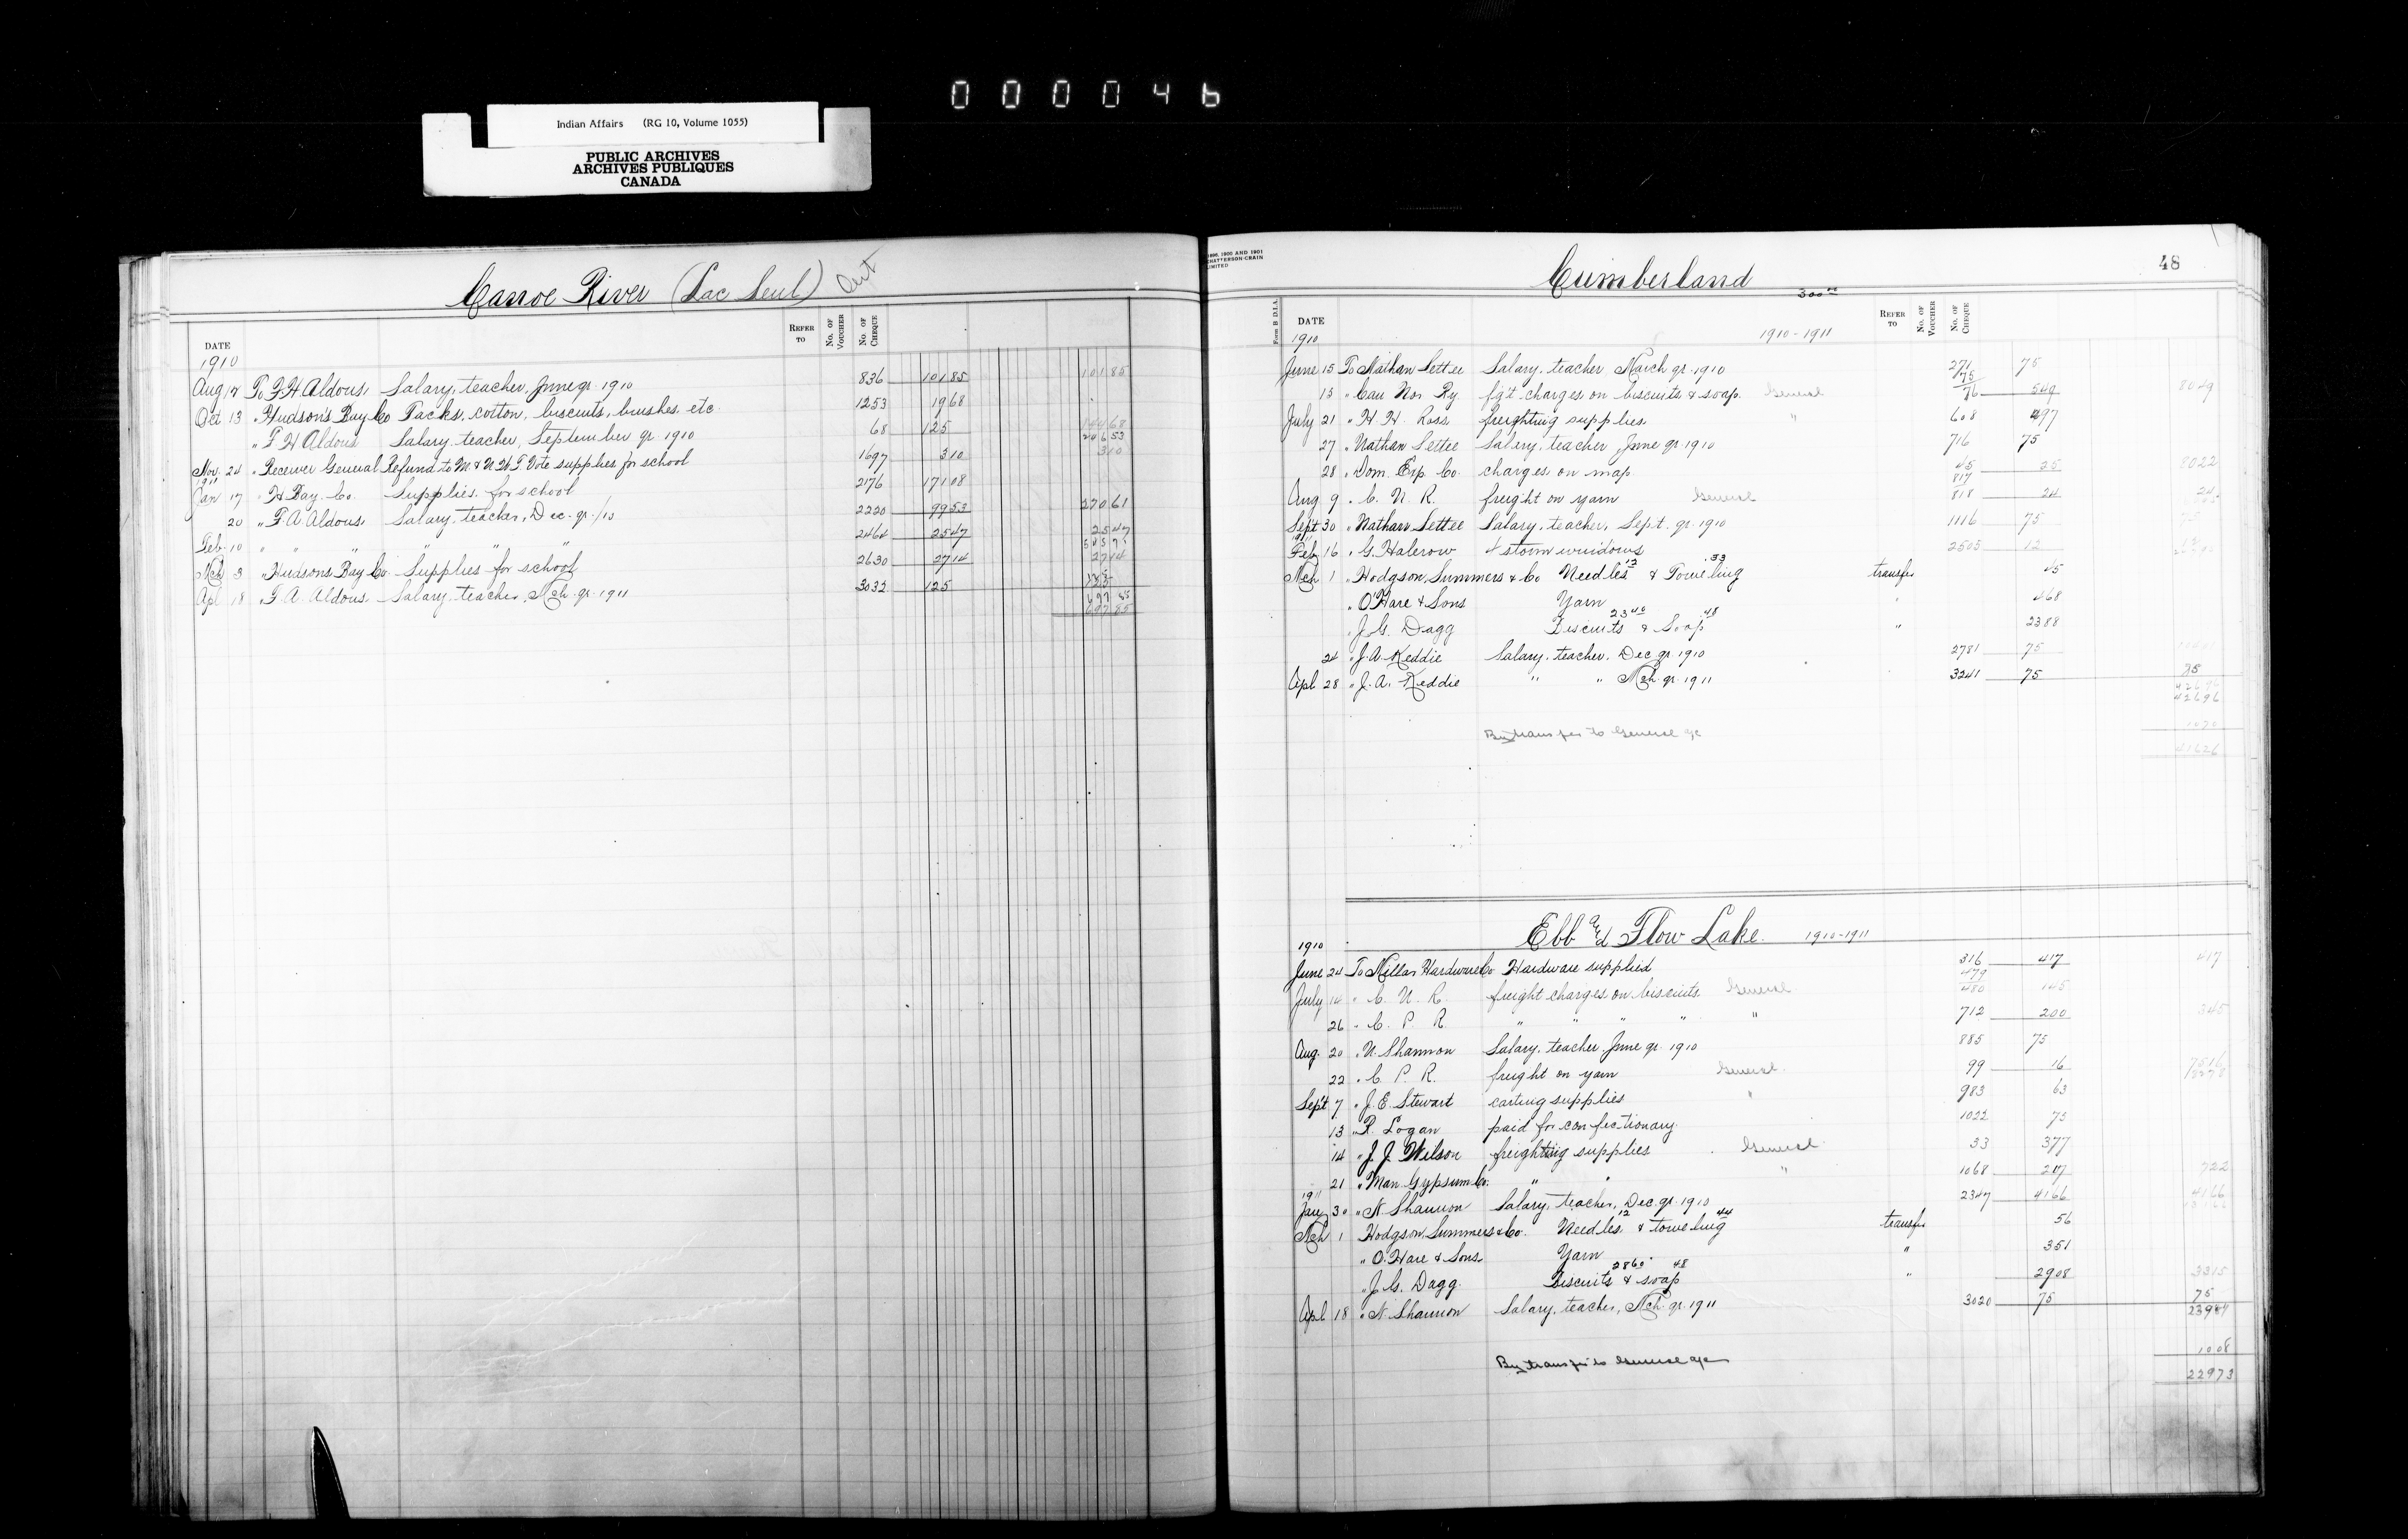 000046
Indian Affairs (RG 10, Volume 1055)
PUBLIC ARCHIVES
ARCHIVES PUBLIQUES
CANADA
Canoe River (Lac Seul) Ont
DATE REFER TO No. OF VOUCHER No. OF CHEQUE
1910
Aug 17 To F. H. Aldous Salary, teacher, June qr. 1910 836 101 85 101 85
Oct 13 " Hudson's Bay Co Tacks, cotton, biscuits, brushes etc. 1253 19 68
" F H Aldous Salary, teacher, September qr 1910 68 125 144 68
246 53
Nov. 24 " Receiver General Refund to M & N.W.T. Vote supplies for school 1697 3 10 3 10
1911
Jan 17 " H Bay Co. Supplies for school 2176 171 08
20 " F. A. Aldous Salary, teacher, Dec. qr./10 2220 99 53 270 61
Feb. 10 " " " " " " 2464 25 47 25 47
Mch 3 " Hudsons Bay Co. Supplies for school 2630 27 14 27 14
Apl 18 " F. A. Aldous Salary, teacher, Mch. qr. 1911 3032 125 125
697 85
697 85
1896, 1900 AND 1901
CHATTERSON-CRAIN
LIMITED
48
Cumberland
300
Form B D.I.A. DATE REFER TO No. OF VOUCHER No. OF CHEQUE
1910 1910-1911
June 15 To Nathan Settee Salary, teacher March qr. 1910 271 75
75
13 " Can Nor Ry. fg't charges on biscuits & soap General 76 5 49 80 49
July 21 " H. H. Ross freighting supplies " 608 4 97
27 " Nathan Settee Salary, teacher, June qr. 1910 716 75
28 " Dom. Exp. Co. charges on map 45 25 80 22
817
Aug 9 " C. N. R. freight on yarn General 818 24 24
Sept 30 " Nathan Settee Salary, teacher, Sept. qr. 1910 1116 75 75
1911
Feb 16 " G. Halcrow 4 storm windows 2503 12 12
13 33
Mch 1 " Hodgson, Summers & Co Needles & Toweling transfer 45
" O'Hare & Sons Yarn " 4 68
23 40 48
" J. G. Dagg Biscuits & Soap " 23 88
24 " J. A. Keddie Salary, teacher, Dec qr. 1910 2781 75
Apl 28 " J. A. Keddie " " Mch. qr. 1911 3241 75 75
426 96
426 96
By transfer to General a/c 10 70
416 26
Ebb and Flow Lake. 1910-1911
1910
June 24 To Millar Hardware Co Hardware supplied 316 4 17 4 17
479
July 14 " C. N. R. freight charges on biscuits General 480 1 45
26 " C. P. R. " " " " " 712 2 00 3 45
Aug. 20 " N. Shannon Salary, teacher, June qr. 1910 885 75
22 " C. P. R. freight on yarn General 99 16 75 16
82 78
Sept 7 " J. E. Stewart carting supplies " 983 63
13 " R. Logan paid for confectionary 1022 75
14 " J. J. Wilson freighting supplies General 33 3 77
21 " Man. Gypsum Co. " " " 1068 2 07 7 22
1911
Jan 30 " N. Shannon Salary, teacher, Dec. qr. 1910 2347 41 66 41 66
12 44
Mch 1 Hodgson, Summers & Co. Needles & toweling transfer 56
" O. Hare & Sons Yarn " 3 51
28 60 48
" J. G. Dagg. Biscuits & soap " 29 08 33 15
Apl 18 " N. Shannon Salary, teacher, Mch. qr. 1911 3020 75 75
239 81
By transfer to General a/c 10 08
229 73